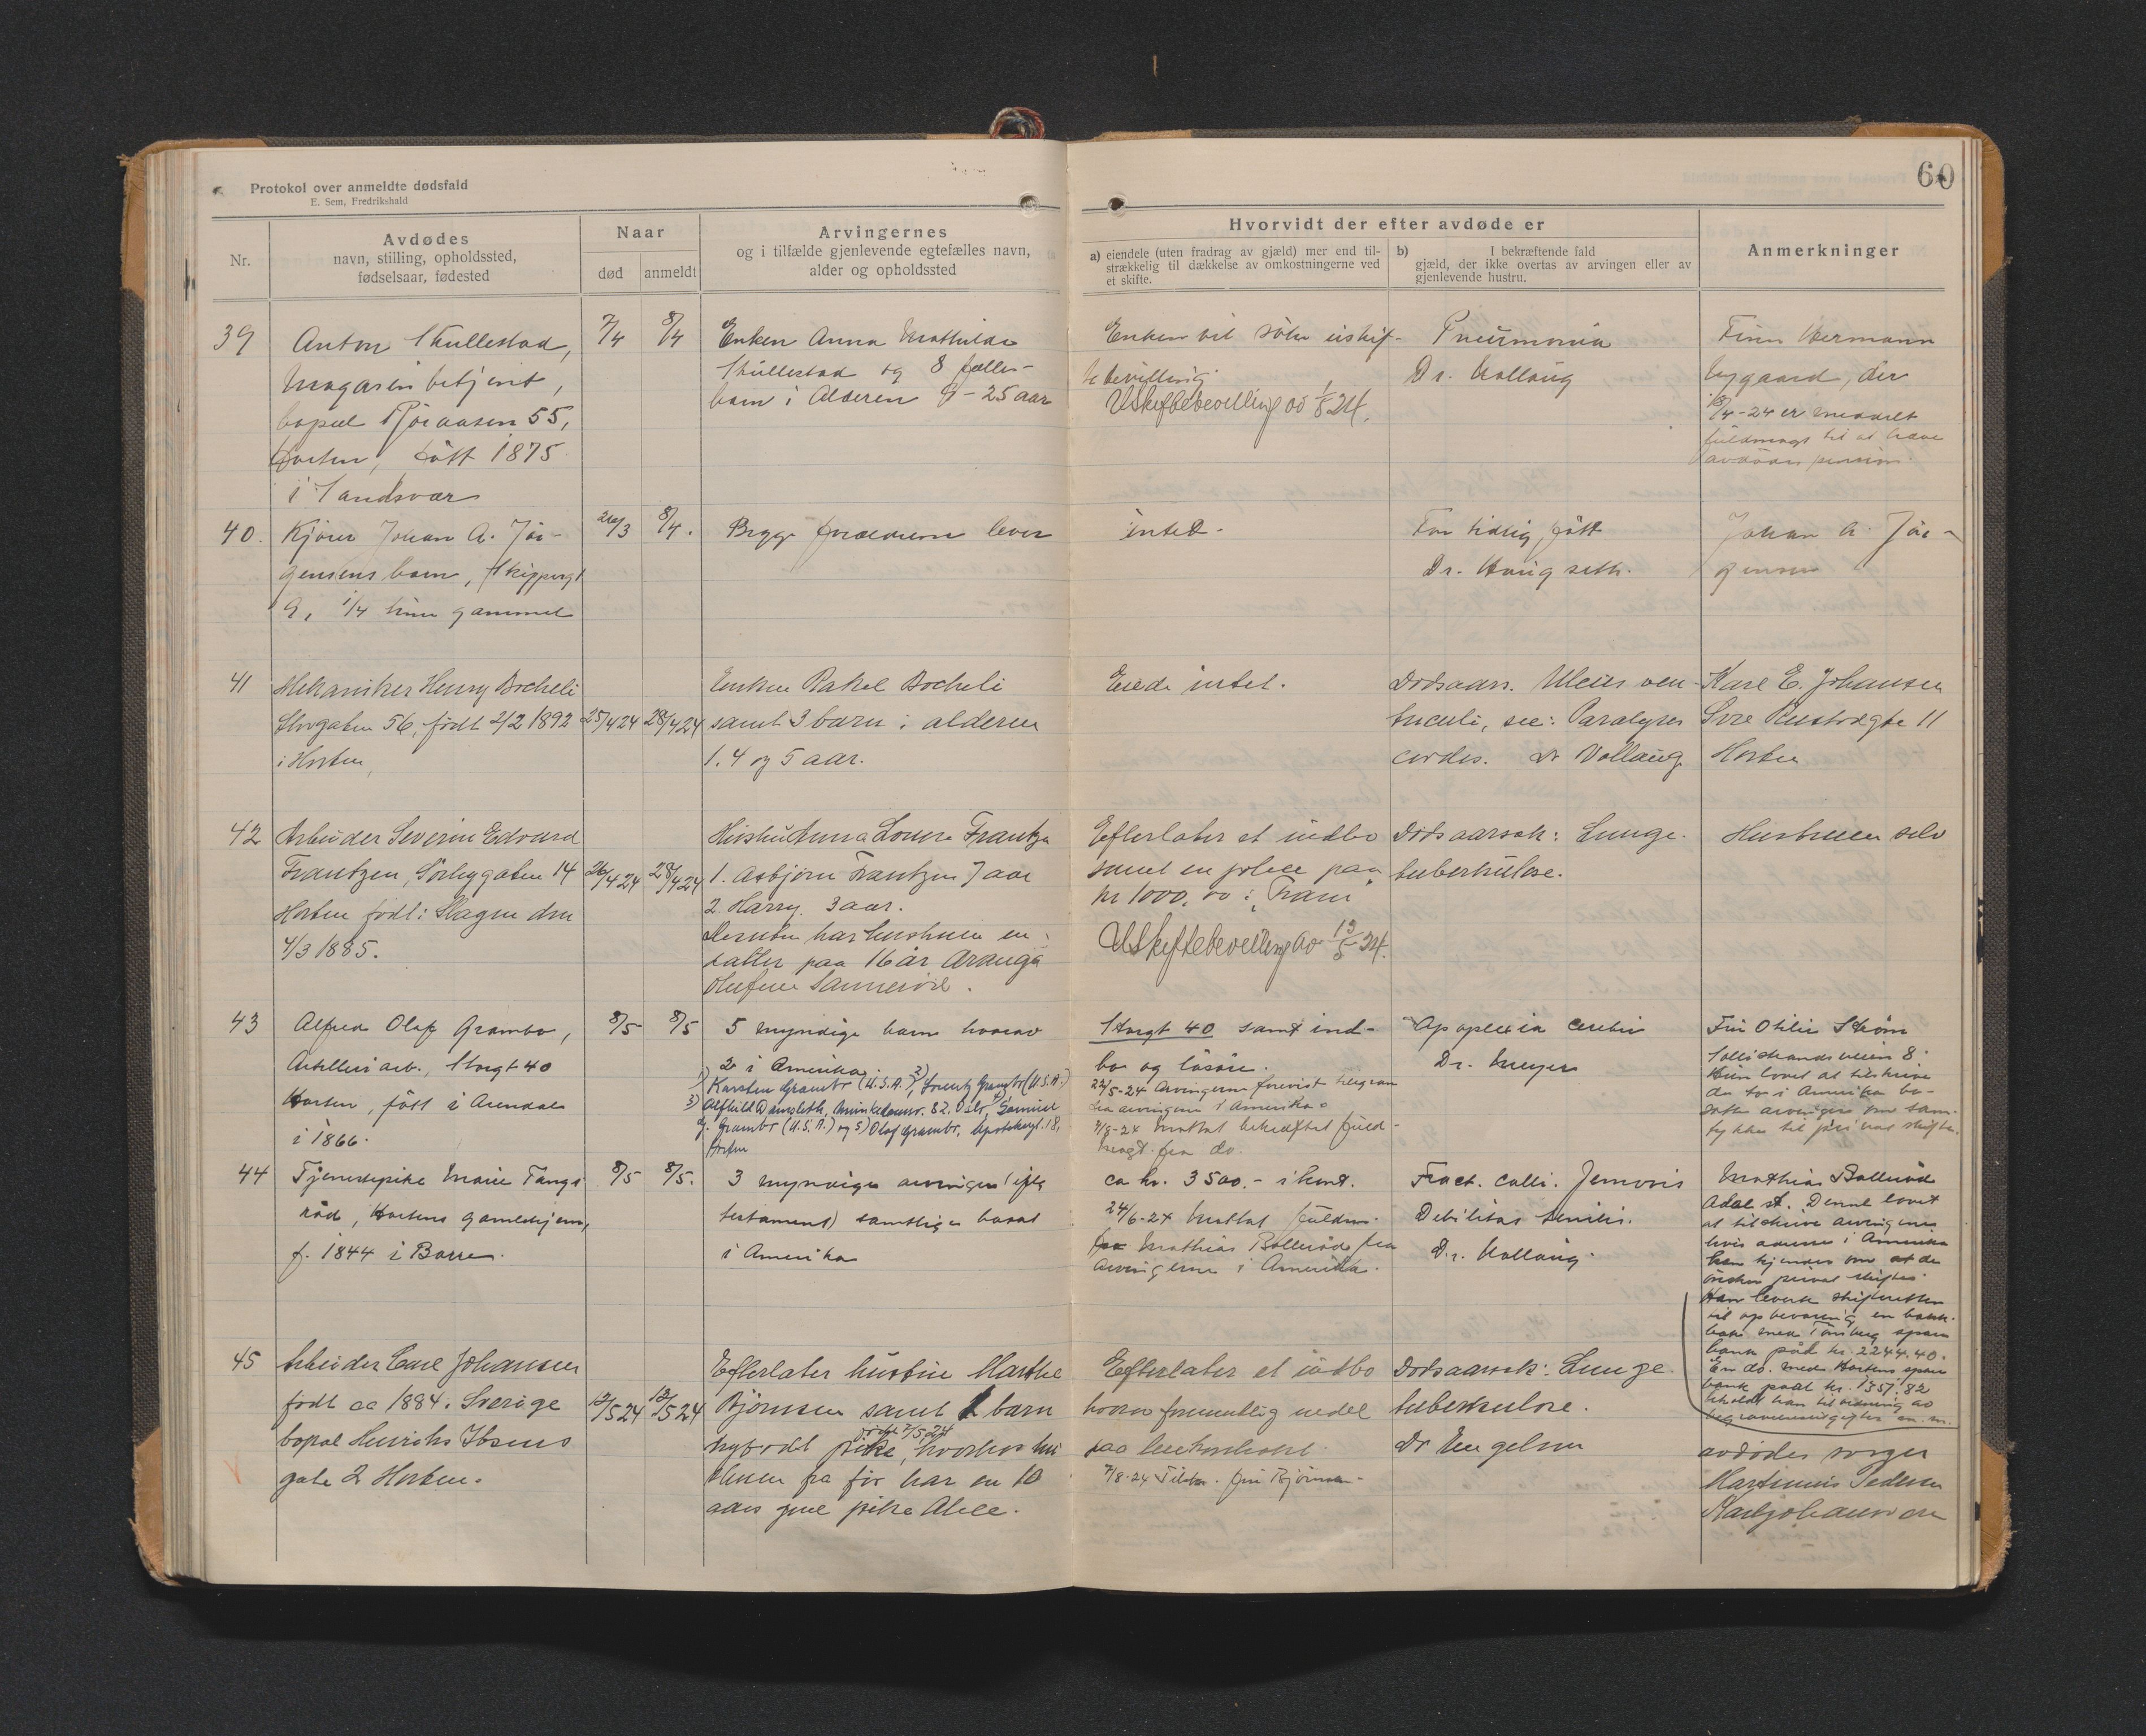 Protokol over anmeldte dødsfald
E. Sem, Fredrikshald
60
Nr.
Avdødes
navn, stilling, opholdssted,
fødselsaar, fødested
Naar
død
anmeldt
Arvingernes
og i tilfælde gjenlevende egtefælles navn,
alder og opholdssted
Hvorvidt der efter avdøde er
a) eiendele (uten fradrag av gjæld) mer end til-
strækkelig til dækkelse av omkostningerne ved
et skifte.
b) I bekræftende fald
gjæld, der ikke overtas av arvingen eller av
gjenlevende hustru.
Anmerkninger
39
Anton Skullestad,
Magasinbetjent,
bopæl Røraasen 55,
Horten, født 1875
i Sandsvær
7/4
8/4
Enken Anna Mathilde
Skullestad og 8 fælles-
barn i Alderen 9-25 aar
Enken vil søke uskif-
te bevilling.
Uskiftebevilling av 1/5 24.
Pneumonia
Dr. Vollaug
Finn Hermann
Nygaard, der
/4-24 er meddelt
fuldmagt til at hæve
avdødes pension.
40.
Kjører Johan A. Jør-
gensens barn, Skippergt
9, 1/4 time gammel
26/3
8/4.
Begge forældrene lever
intet.
For tidlig født
Dr. Haugseth.
Johan A. Jør-
gensen
41
Mekaniker Henry Bocheli
Storgaten 56, født 2/2 1892
i Horten
25/4 24
28/4 24
Enken Rakel Bocheli
samt 3 barn i alderen
1. 4 og 5 aar.
Eiede intet.
Dødsaars. Ulcus ven-
triculi, sec: Paralyses
cordis. Dr Vollaug
Kare E. Johansen
11
Horten
42
Arbeider Severin Edvard
Frantzen, Sørbygaten 14
Horten født i Skagen den
4/3 1885.
26/4 24
28/4 24
Hustru Anna Lovise Frantzen
1. Asbjørn Frantzen 7 aar
2. Harry. 3 aar.
Desuten har hustruen en
datter paa 16 år
Olufine
Efterlater et indbo
samt en police paa
kr 1000,00 i "Fram"
Uskiftebevilling av 13/5 24.
Dødsaarsak: Lunge-
tuberkulose.
Hustruen selv
43
Alfred Olaf Grambo,
Artilleriarb., Storgt 40
Horten, født i Arendal
i 1866.
8/5
8/5
5 myndige barn hvorav
2 i Amerika.
1) Karsten Grambo (U.S.A.), 2) Lorentz Grambo (U.S.A.)
3) Alfhild Damsleth, Munkedamsv. 82. Oslo, 4) Samuel
G. Grambo (U.S.A.) og 5) Olaf Grambo, Apotekergt. 18,
Horten
Storgt 40 samt ind-
bo og løsøre.
22/5-24 Arvingerne forevist telegram
fra arvingerne i Amerika.
7/8-24 Mottat bekræftet fuld-
magt fra do.
Apoplexia cerebri
Dr. Meyer
Fru Otilie Strøm
Sollistrandsveien 8.
Hun lovet at tilskrive
de to i Amerika bo-
satte arvinger om sam-
tykke til privat skifte.
44
Tjenestepike Marie Fangs
rød, Hortens gamlehjem,
f. 1844 i Borre.
8/5
8/5.
3 myndige arvinger (efter
testament) samtlige bosat
i Amerika
ca kr. 3500.- i kont.
24/6-24 Mottat fuldm.
fra Mathias Bollerød fra
arvingerne i Amerika.
Fract. colli. femoris
Debilitas senilis.
Dr. Vollaug.
Mathias Bollerød
Adal st. Denne lovet
at tilskrive arvingene
hvis adresse i Amerika
han kjender om at de
ønsker privat skifte.
Han leverte skifteretten
til opbevaring en bank-
bok med Tønsberg spare
bank pålt kr. 2244.40.
En do. med Hortens spare
bank pålt kr. 1351.82
beholdt han til ordning av
begravelsesutgifter m.m.
45
Arbeider Carl Johansen
født ca 1884 i Sverige
bopæl Henriks Ibsens
gate 2 Horten.
12/5 24
13/5 24
Efterlater hustru Marthe
Bjørnsen samt 1 barn
nyfødt pike, hvorhos hu
død 7/5 24
struen fra før har en 10
aars gml pike Alice.
Efterlater et indbo
hvorav formentlig endel
paa leiekontrakt.
7/8-24 Tilskr. fru Bjørnsen
Dødsaarsak: Lunge
tuberkulose.
Dr Engelsen
avdødes svoger
Martinius Pedersen
Karljohansvern